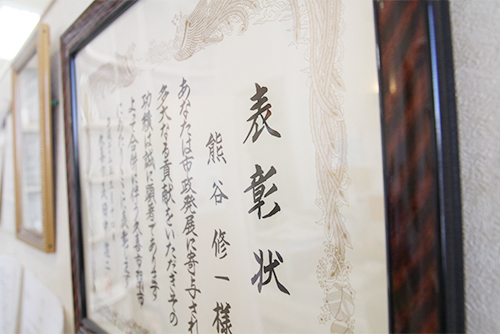 表彰状
熊谷修一様
あなたは市政発展に寄与され
多大なる貢献をいただきその
功績は誠に顕著であります
よって合併に伴う久喜市